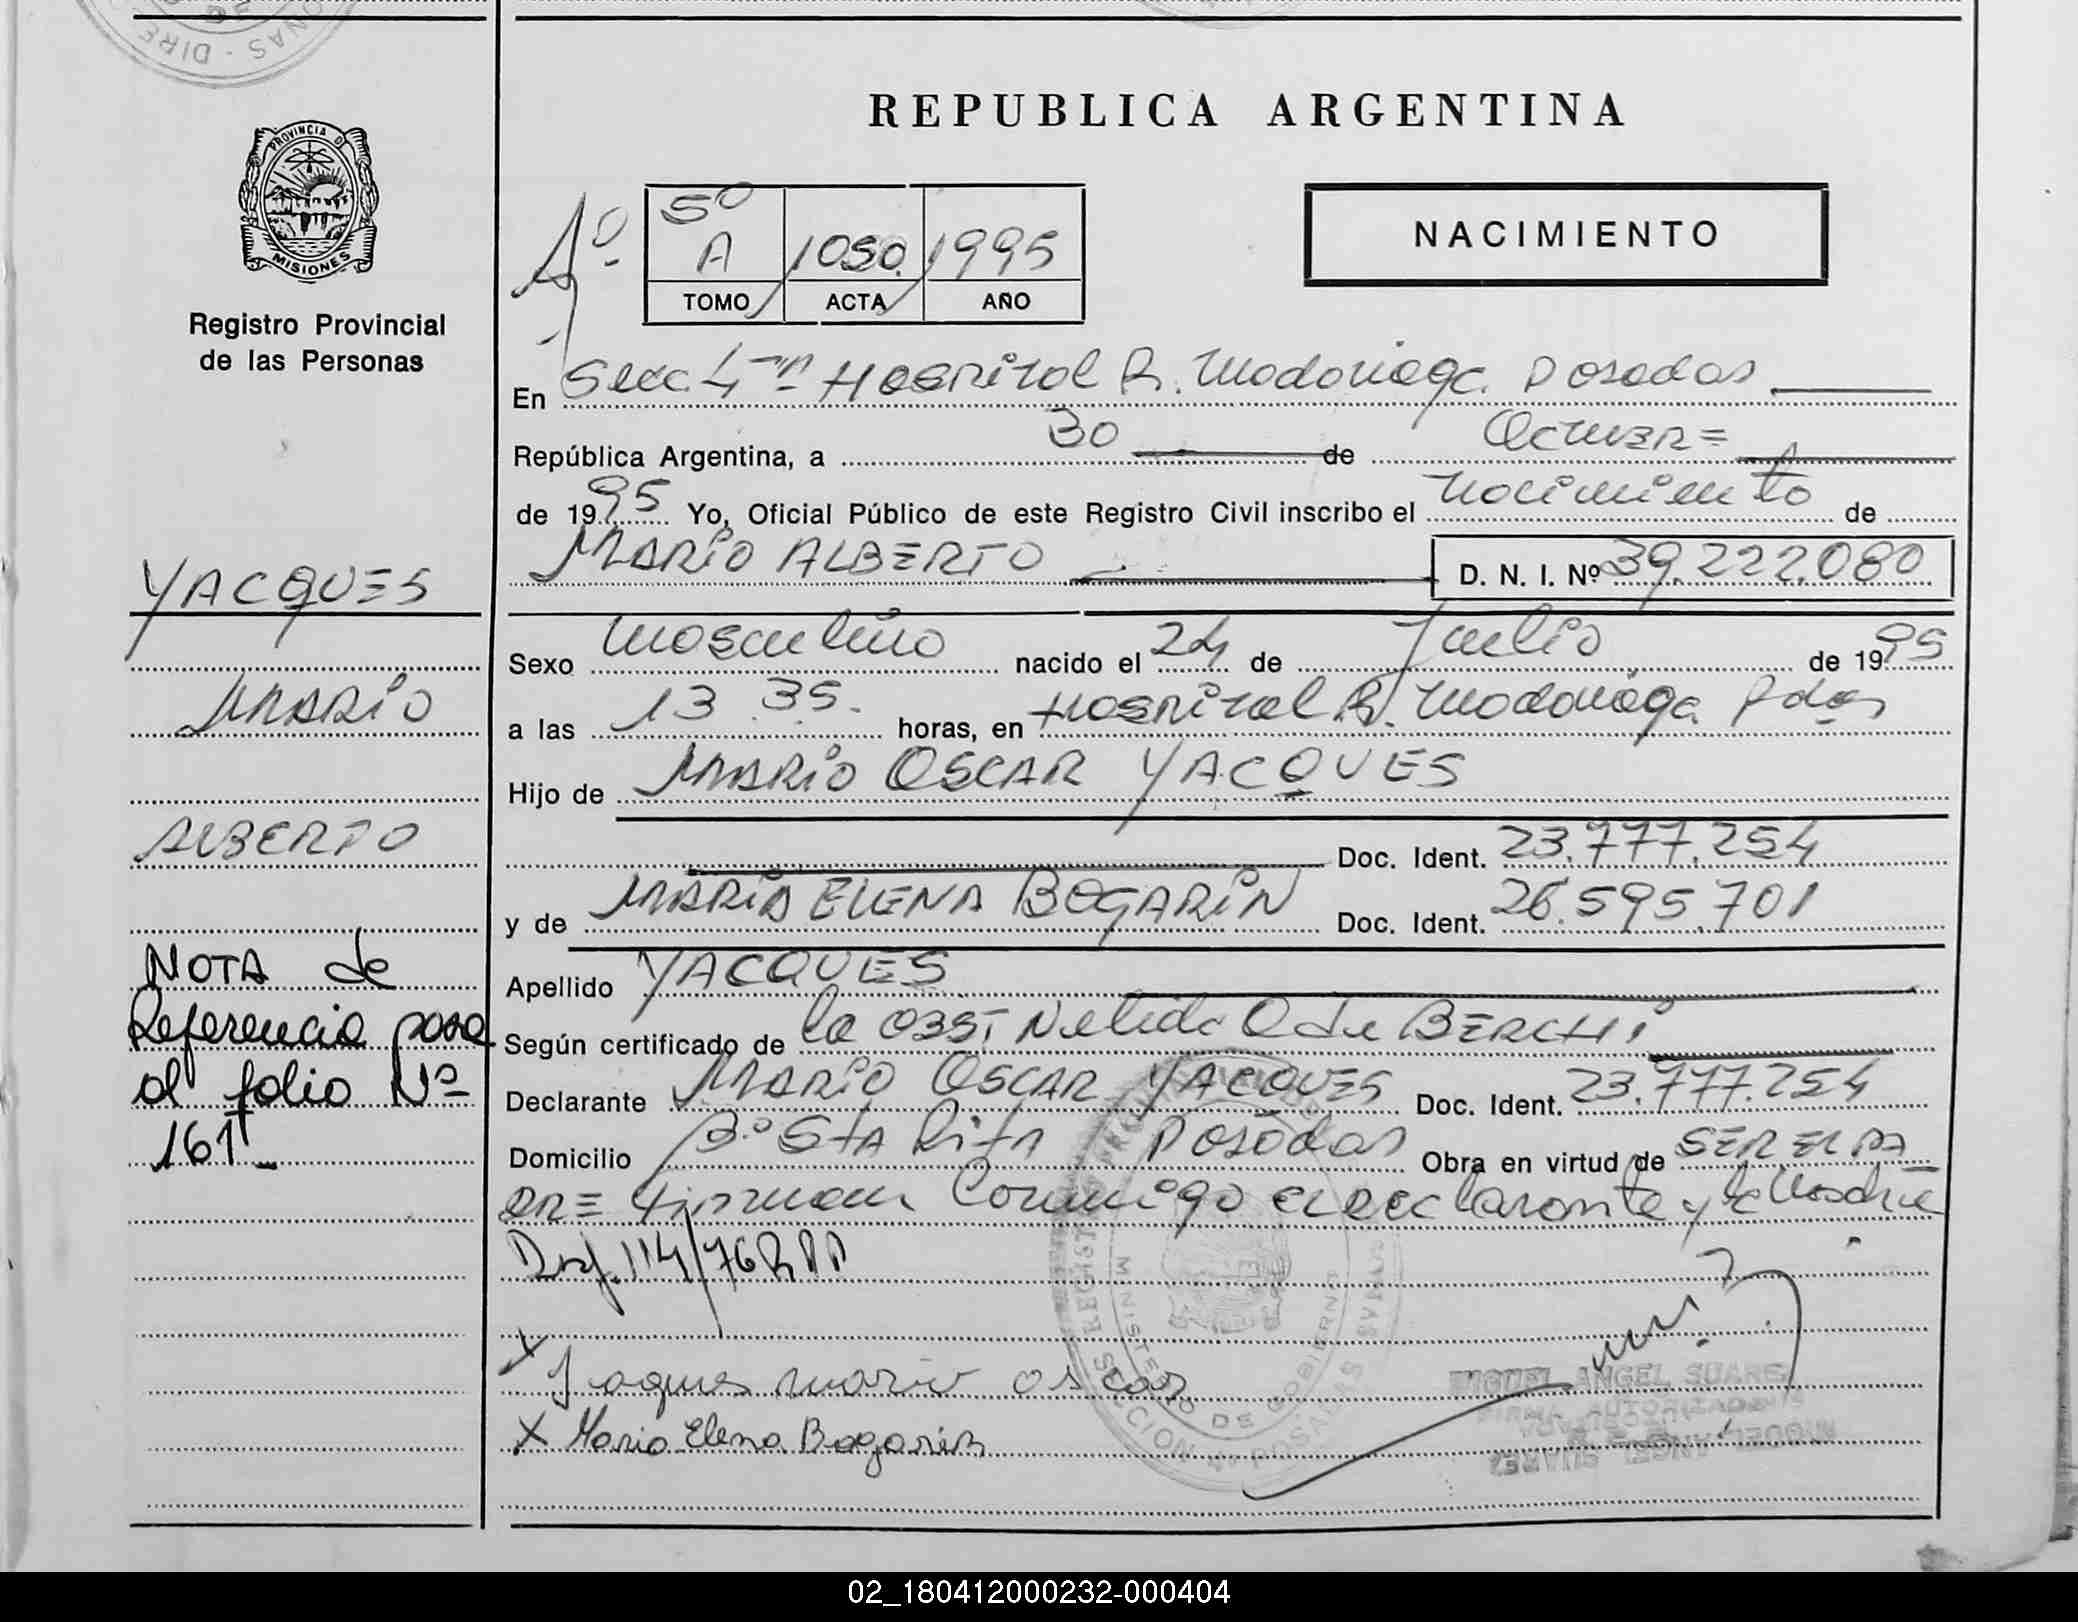 PROVINCIA DE
MISIONES
Registro Provincial
de las Personas
REPUBLICA ARGENTINA
NACIMIENTO
Aº
5º
A 1050. 1995
TOMO ACTA AÑO
En Secc 4ta Hospital R. Madariaga Posadas
República Argentina, a 30 de Octubre
de 1995 Yo, Oficial Público de este Registro Civil inscribo el nacimiento de
MARIO ALBERTO D. N. I. Nº 39.222.080
Sexo Masculino nacido el 24 de Julio de 1995
a las 13 35. horas, en Hospital R. Madariaga Pdas
Hijo de MARIO OSCAR YACQUES
Doc. Ident. 23.777.254
y de MARIA ELENA BOGARIN Doc. Ident. 26.595.701
Apellido YACQUES
Según certificado de la OBST Nelida O de BERCHI
Declarante MARIO OSCAR YACQUES Doc. Ident. 23.777.254
Domicilio Bº Sta Rita Posadas Obra en virtud de SER EL PA
DRE firman Conmigo el declarante y la Madre
Disp. 114/76 RPP
X Yaques mario oscar
X Maria Elena Bogarin
MIGUEL ANGEL SUAREZ
FIRMA AUTORIZADA
MIGUEL ANGEL SUAREZ
MINISTERIO DE GOBIERNO
SECCION 4º POSADAS
YACQUES
MARIO
ALBERTO
NOTA de
Referencia pasa
al folio Nº
161
02_180412000232-000404